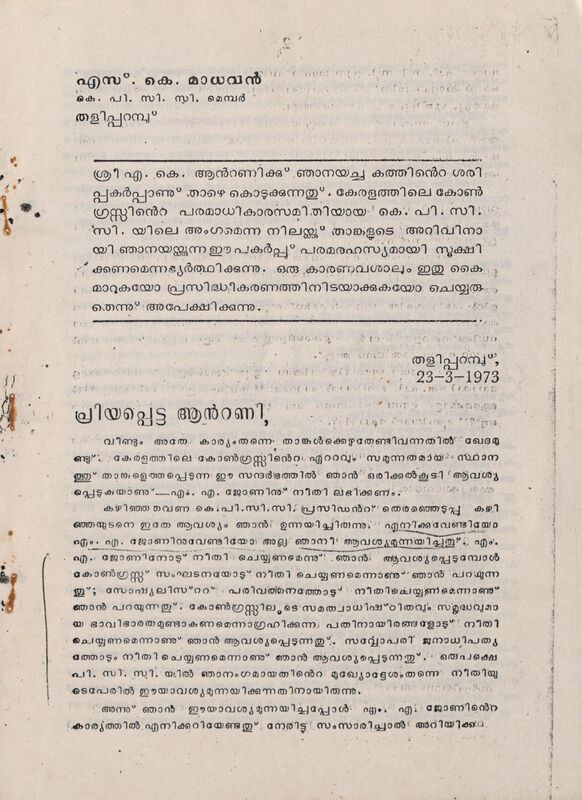 എസ്. കെ. മാധവൻ
കെ. പി. സി. സി. മെമ്പർ
തളിപ്പറമ്പ്
ശ്രീ എ. കെ. ആൻറണിക്കു് ഞാനയച്ച കത്തിൻെറ ശരി
പ്പകർപ്പാണു് താഴെ കൊടുക്കുന്നതു്. കേരളത്തിലെ കോൺ
ഗ്രസ്സിൻെറ പരമാധികാരസമിതിയായ കെ. പി. സി.
സി. യിലെ അംഗമെന്ന നിലയ്ക്കു് താങ്കളുടെ അറിവിനാ
യി ഞാനയയ്ക്കുന്ന ഈ പകർപ്പു് പരമരഹസ്യമായി സൂക്ഷി
ക്കണമെന്നഭ്യർത്ഥിക്കുന്നു. ഒരു കാരണവശാലും ഇതു കൈ
മാറുകയോ പ്രസിദ്ധീകരണത്തിനിടയാക്കുകയോ ചെയ്യരു
തെന്നു് അപേക്ഷിക്കുന്നു.
തളിപ്പറമ്പു്,
23-3-1973
പ്രിയപ്പെട്ട ആൻറണി,
വീണ്ടും അതേ കാര്യംതന്നെ താങ്കൾക്കെഴുതേണ്ടിവന്നതിൽ ഖേദമു
ണ്ടു്. കേരളത്തിലെ കോൺഗ്രസ്സിൻെറ ഏററവും സമുന്നതമായ സ്ഥാന
ത്തു് താങ്കളെത്തപ്പെടുന്ന ഈ സന്ദർഭത്തിൽ ഞാൻ ഒരിക്കൽകൂടി ആവശ്യ
പ്പെടുകയാണു്—എം. എ. ജോണിനു് നീതി ലഭിക്കണം.
കഴിഞ്ഞതവണ കെ.പി.സി.സി. പ്രസിഡൻറ് തെരഞ്ഞെടുപ്പു കഴി
ഞ്ഞയുടനെ ഇതേ ആവശ്യം ഞാൻ ഉന്നയിച്ചിരുന്നു. എനിക്കുവേണ്ടിയോ
എം. എ. ജോണിനുവേണ്ടിയോ അല്ല ഞാനീ ആവശ്യമുന്നയിച്ചതു്. എം.
എ. ജോണിനോടു് നീതി ചെയ്യണമെന്നു് ഞാൻ ആവശ്യപ്പെടുമ്പോൾ
കോൺഗ്രസ്സ് സംഘടനയോടു് നീതി ചെയ്യണമെന്നാണു് ഞാൻ പറയുന്ന
തു്; സോഷ്യലിസ്ററ് പരിവർത്തനത്തോടു് നീതിചെയ്യണമെന്നാണു്
ഞാൻ പറയുന്നതു്. കോൺഗ്രസിലൂടെ സമത്വാധിഷ്ഠിതവും സമൃദ്ധവുമാ
യ ഭാവിഭാരതമുണ്ടാകണമെന്നാഗ്രഹിക്കുന്ന പതിനായിരങ്ങളോടു് നീതി
ചെയ്യണമെന്നാണു് ഞാൻ ആവശ്യപ്പെടുന്നതു്. സർവ്വോപരി ജനാധിപത്യ
ത്തോടും നീതി ചെയ്യണമെന്നാണു് ഞാൻ ആവശ്യപ്പെടുന്നതു്. ഒരുപക്ഷെ
പി. സി. സി. യിൽ ഞാനംഗമായതിൻെറ മുഖ്യോദ്ദേശംതന്നെ നീതിയു
ടെപേരിൽ ഈയാവശ്യമുന്നയിക്കുന്നതിനായിരുന്നു.
അന്നു് ഞാൻ ഈയാവശ്യമുന്നയിച്ചപ്പോൾ എം. എ. ജോണിൻെറ
കാര്യത്തിൽ എനിക്കറിയേണ്ടതു് നേരിട്ടു സംസാരിച്ചാൽ അറിയിക്കു